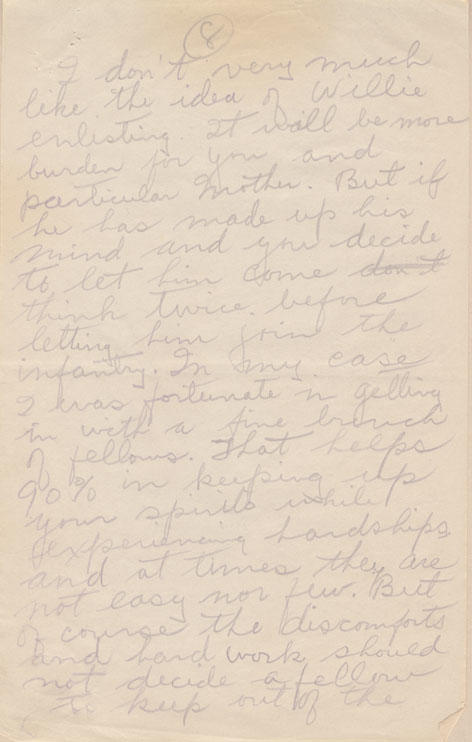 8
I don't very much
like the idea of Willie
enlisting. It will be more
burden for you and
particular Mother. But if
he has made up his
mind and you decide
to let him come don't
think twice before
letting him join the
infantry. In my case
I was fortunate n getting
in with a fine bunch
of fellows. That helps
90% in keeping up
your spirits while
experiencing hardships
and at times they are
not easy nor few. But
of course the discomforts
and hard work should
not decide a fellow
to keep out of the